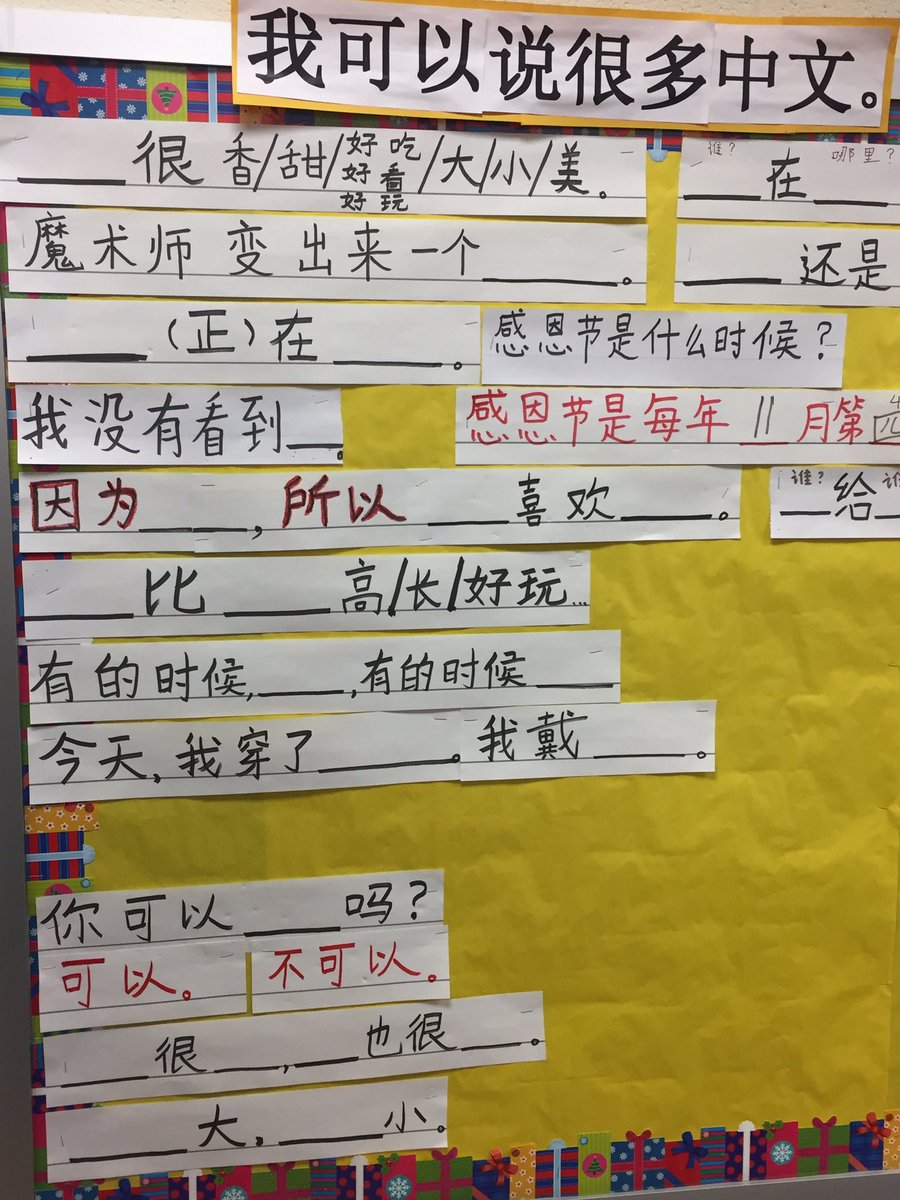 我可以说很多中文。
____很香/甜/好吃 好看 好玩/大/小/美。
谁? 哪里?
____在____
魔术师变出来一个____。
____还是
____(正)在____。
感恩节是什么时候?
我没有看到____.
感因节是每年11月第四
因为____,所以____喜欢____。
谁? 谁
____给____
____比____高/长/好玩...
有的时候,____,有的时候____
今天,我穿了____。我戴____。
你可以____吗?
可以。
不可以。
____很____,____也很____。
____大,____小。